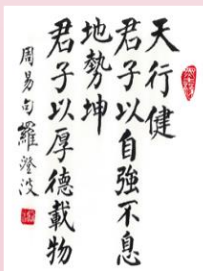 天行健
君子以自強不息
地勢坤
君子以厚德載物
周易句羅澄波